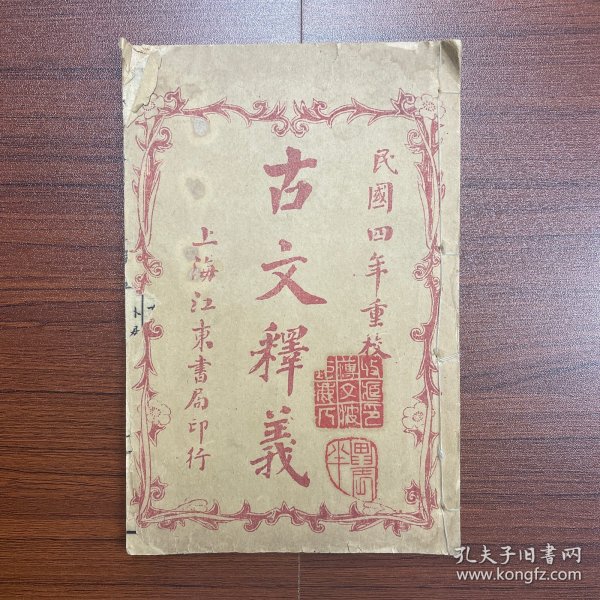 民國四年重校
古文釋義
上海江東書局印行
孔夫子旧书网
www.kongfz.com